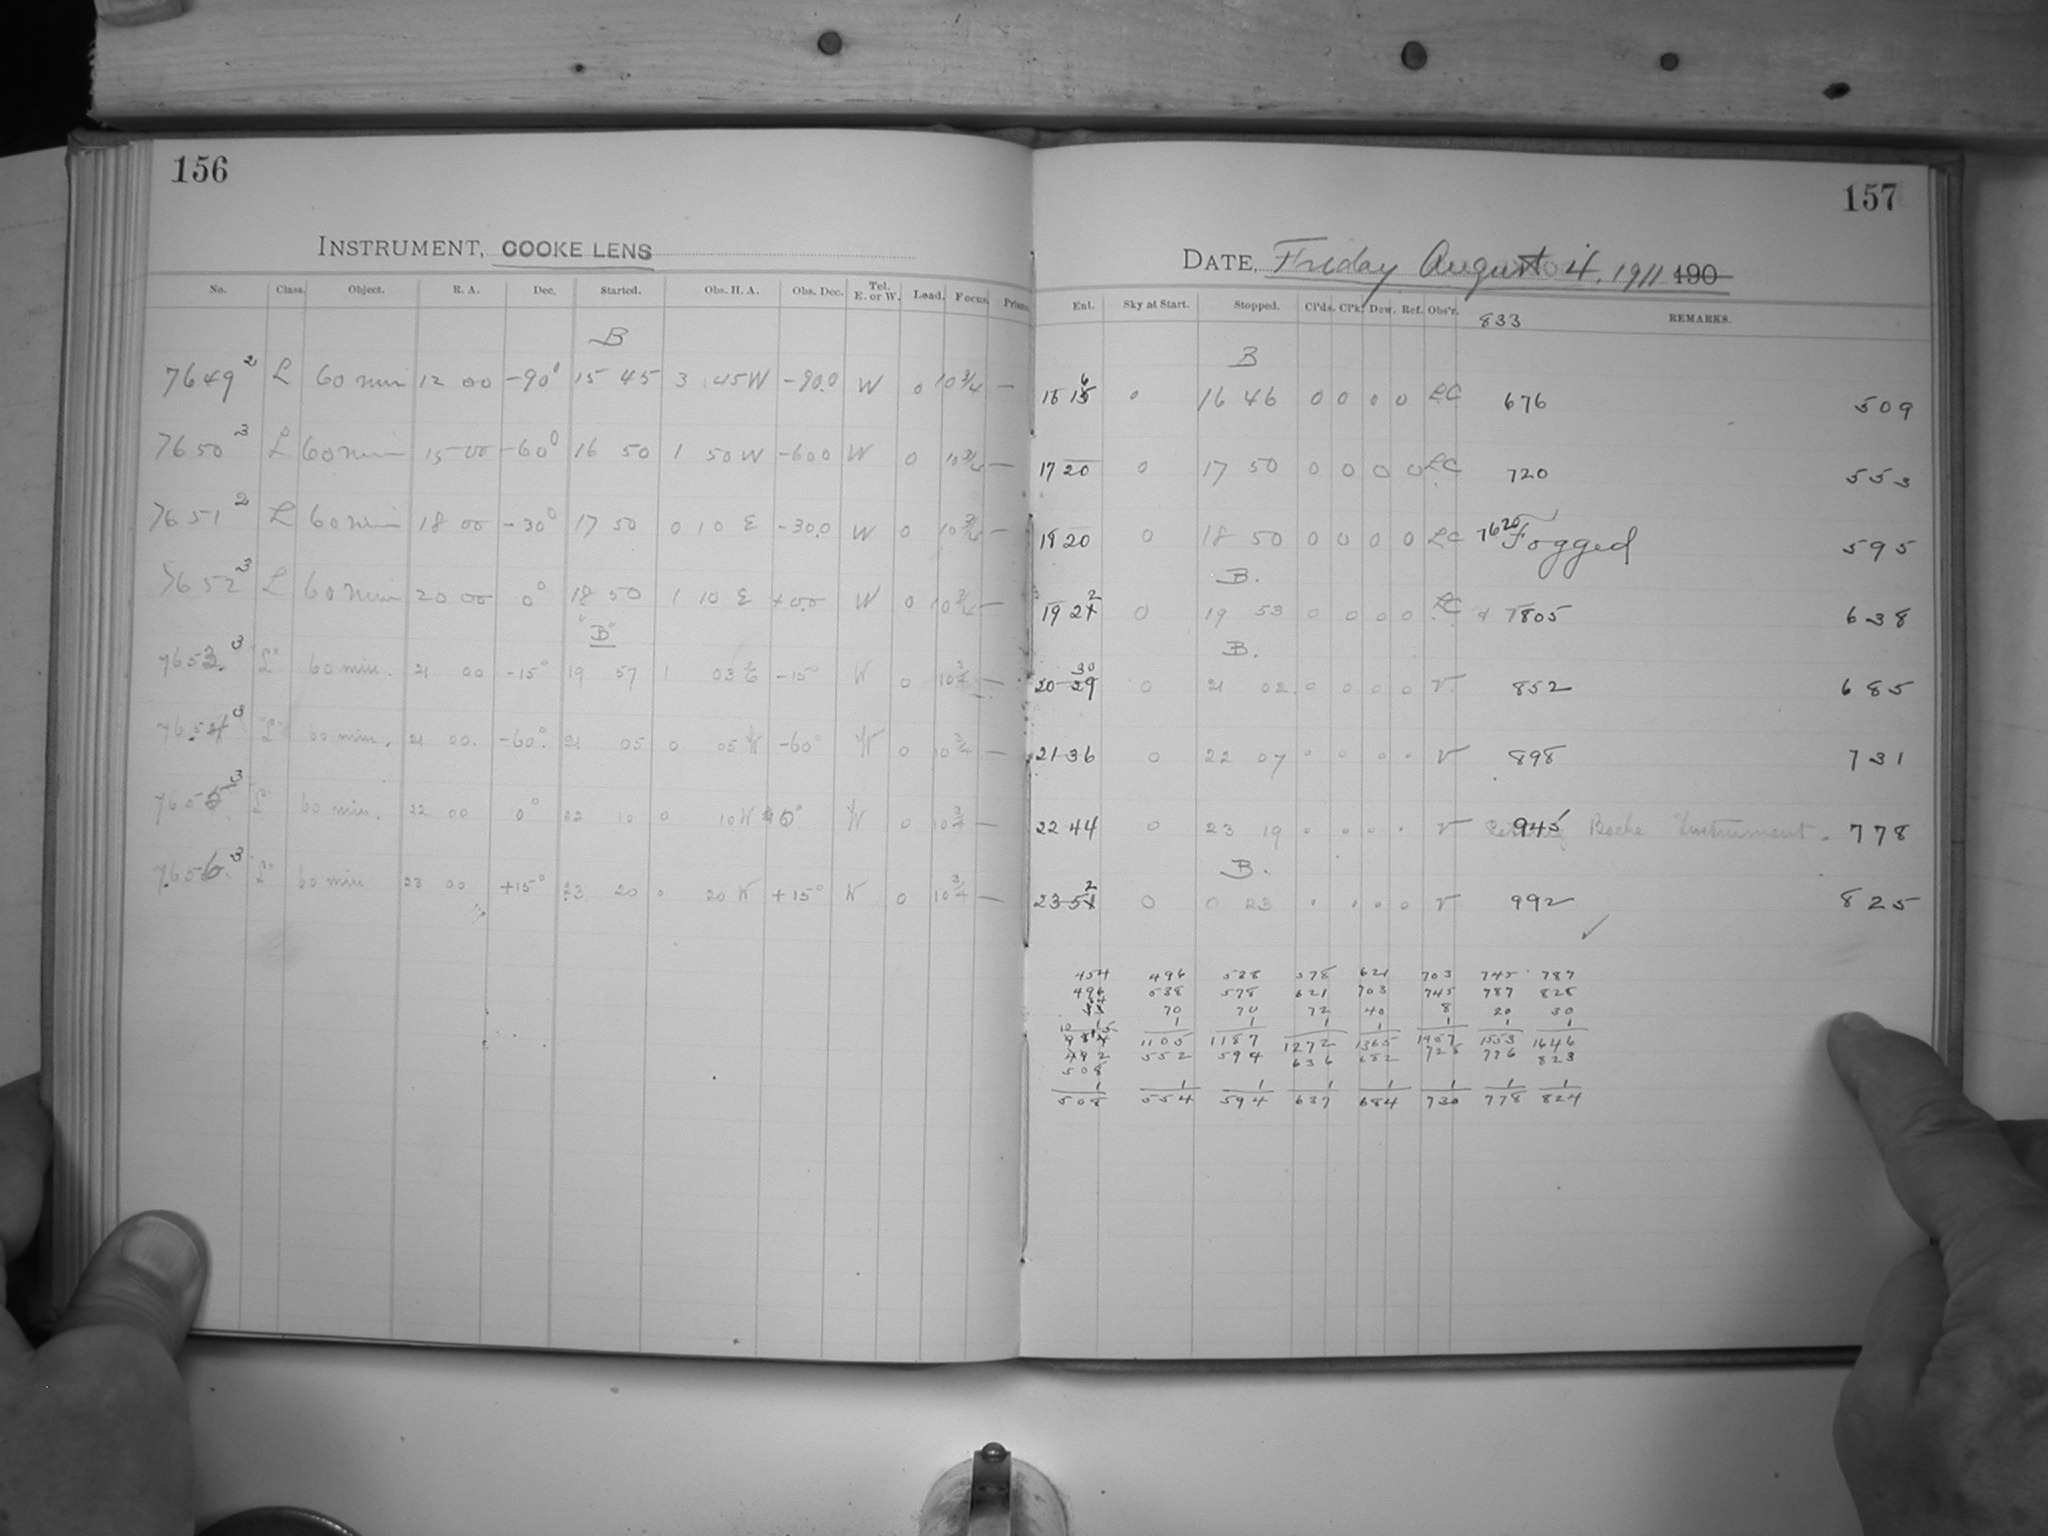 156
INSTRUMENT, COOKE LENS
No. Class. Object. R. A. Dec. Started. Obs. H. A. Obs. Dec. Tel. E. or W. Load. Focus. Prisms.
B
7649² L 60 min 12 00 -90° 15 45 3 45 W -90.0 W 0 10 3/4 —
7650³ L 60 min 15 00 -60° 16 50 1 50 W -60.0 W 0 10 3/4 —
7651² L 60 min 18 00 -30° 17 50 0 10 E -30.0 W 0 10 3/4 —
7652³ L 60 min 20 00 0° 18 50 1 10 E +0.0 W 0 10 3/4 —
"B"
7653³ "L" 60 min. 21 00 -15° 19 57 1 03 E -15° W 0 10 3/4 —
7654³ "L" 60 min. 21 00. -60° 21 05 0 05 W -60° W 0 10 3/4 —
7655³ "L" 60 min. 22 00 0° 22 10 0 10 W 0° W 0 10 3/4 —
7656³ "L" 60 min 23 00 +15° 23 20 0 20 W +15° W 0 10 3/4 —
157
DATE, Friday August 4, 1911 190
Ent. Sky at Start. Stopped. Cl'ds. Cl'k. Dew. Ref. Obs'r. REMARKS.
833
B
16 15 6 0 16 46 0 0 0 0 LC 676 509
17 20 0 17 50 0 0 0 0 LC 720 553
18 20 0 18 50 0 0 0 0 LC 7620 Fogged 595
B.
19 21 2 0 19 53 0 0 0 0 LC 7805 638
B.
20 29 30 0 21 02 0 0 0 0 V 852 685
21 36 0 22 07 0 0 0 0 V 898 731
22 44 0 23 19 0 0 0 0 V 945 Bache Instrument. 778
B.
23 51 2 0 0 23 0 0 0 0 V 992 825
454 496 538 578 621 703 745 787
496 538 578 621 703 745 787 828
70 70 72 40 8 20 30
1 1 1 1 1 1 1
1105 1187 1272 1365 1457 1553 1646
492 552 594 636 682 728 776 823
508
1 1 1 1 1 1 1 1
508 554 594 637 684 730 778 824